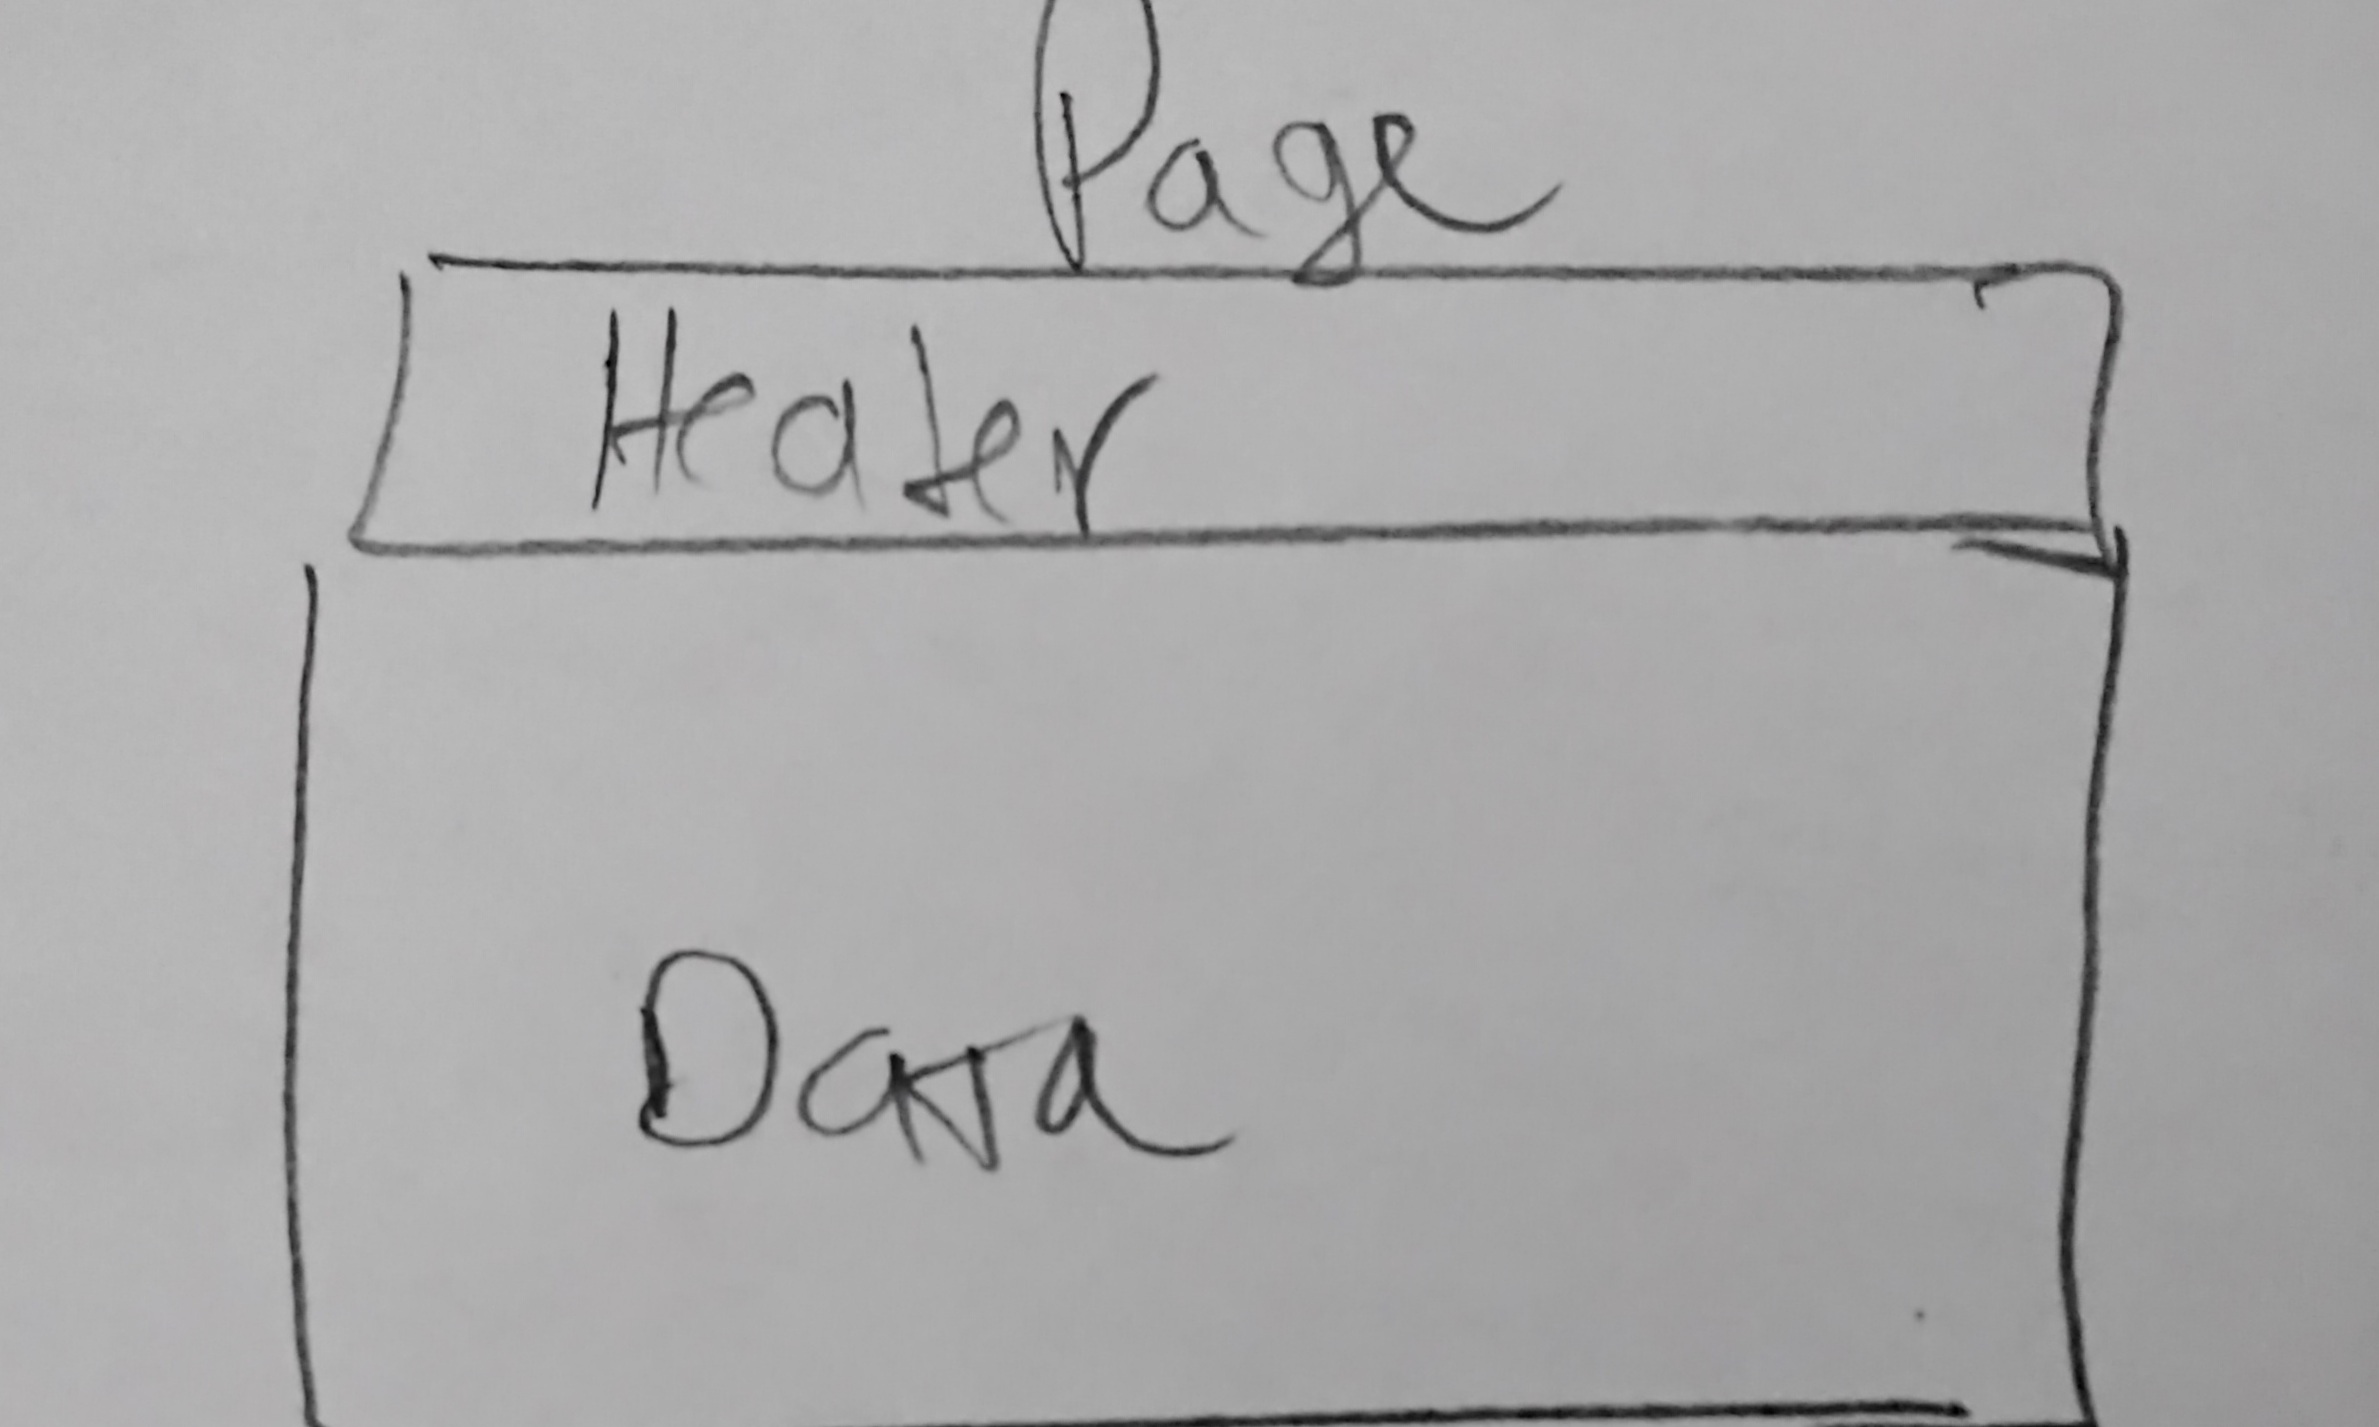 Page
Header
Data